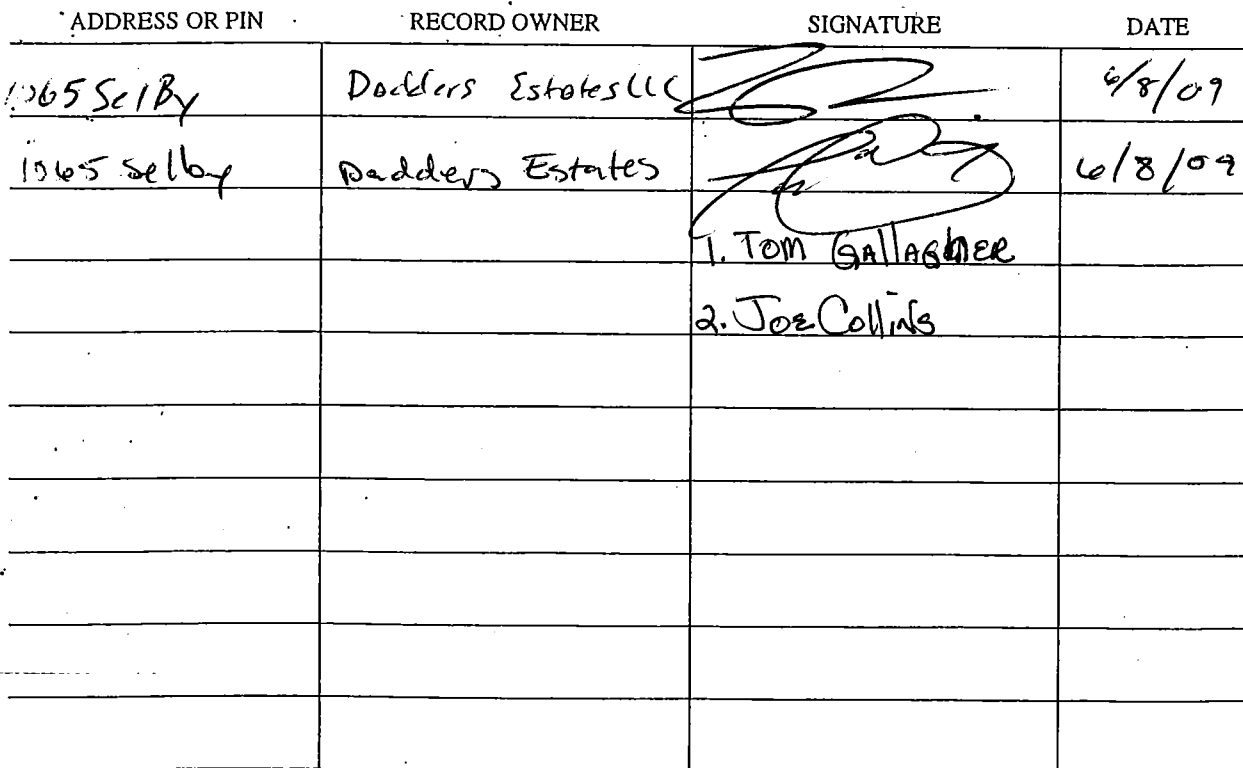 ADDRESS OR PIN RECORD OWNER SIGNATURE DATE
1565 SelBy Dadders Estates LLC 6/8/09
1565 Selby Dadders Estates 6/8/09
1. TOM GALLAGHER
2. Joe Collins